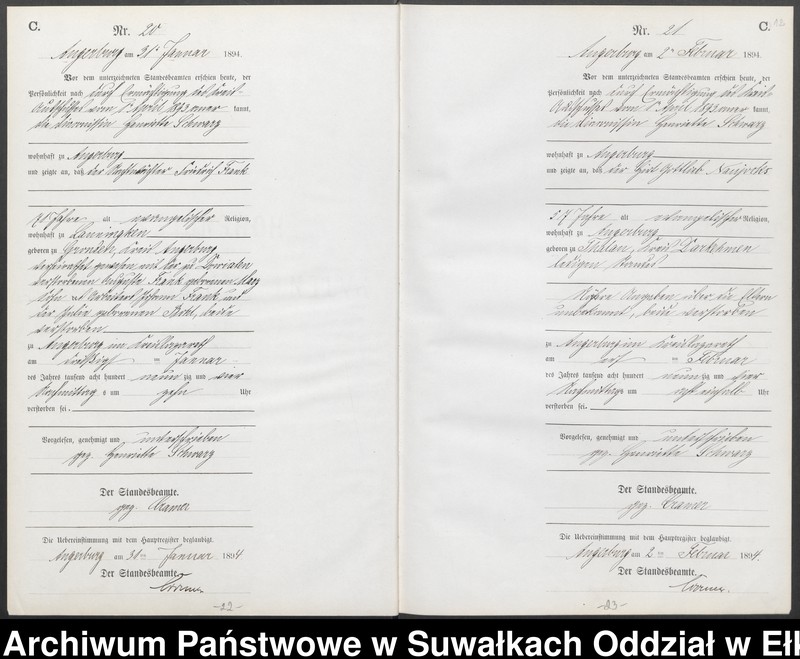 C.
Nr. 20.
Angerburg am 31ⁿ Januar 1894.
Vor dem unterzeichneten Standesbeamten erschien heute, der
Persönlichkeit nach durch Ermächtigung des Kreis-
Ausschusses vom 1ⁿ April 1893 aner kannt,
die Diaconissin Henriette Schwarz
wohnhaft zu Angerburg
und zeigte an, daß der Friedrich Frank
70 Jahre alt evangelischer Religion,
wohnhaft zu
geboren zu Kreis Angerburg
verheirathet gewesen mit der zu
verstorbenen Auguste Frank geborenen
Sohn des Arbeiters Frank und
der geborenen beide
verstorben
zu Angerburg im Kreislazareth
am dreißigsten Januar
des Jahres tausend acht hundert neun zig und vier
Nachmittags um zehn Uhr
verstorben sei.
Vorgelesen, genehmigt und unterschrieben
gez. Henriette Schwarz
Der Standesbeamte.
gez. Cramer
Die Uebereinstimmung mit dem Hauptregister beglaubigt.
Angerburg am 31ⁿ Januar 1894
Der Standesbeamte.
Cramer
-22-
C.
Nr. 21.
Angerburg am 2ⁿ Februar 1894.
Vor dem unterzeichneten Standesbeamten erschien heute, der
Persönlichkeit nach durch Ermächtigung des Kreis-
Ausschusses vom 1ⁿ April 1893 aner kannt,
die Diaconissin Henriette Schwarz
wohnhaft zu Angerburg
und zeigte an, daß der Hirt Gottlieb
57 Jahre alt evangelischer Religion,
wohnhaft zu Angerburg
geboren zu Kreis Darkehmen
ledigen Standes
Nähere Angaben über die Eltern
unbekannt, beide verstorben
zu Angerburg im Kreislazareth
am ersten Februar
des Jahres tausend acht hundert neun zig und vier
Nachmittags um Uhr
verstorben sei.
Vorgelesen, genehmigt und unterschrieben
gez. Henriette Schwarz
Der Standesbeamte.
gez. Cramer
Die Uebereinstimmung mit dem Hauptregister beglaubigt.
Angerburg am 2ⁿ Februar 1894.
Der Standesbeamte.
Cramer.
-23-
Archiwum Państwowe w Suwałkach Oddział w Ełk